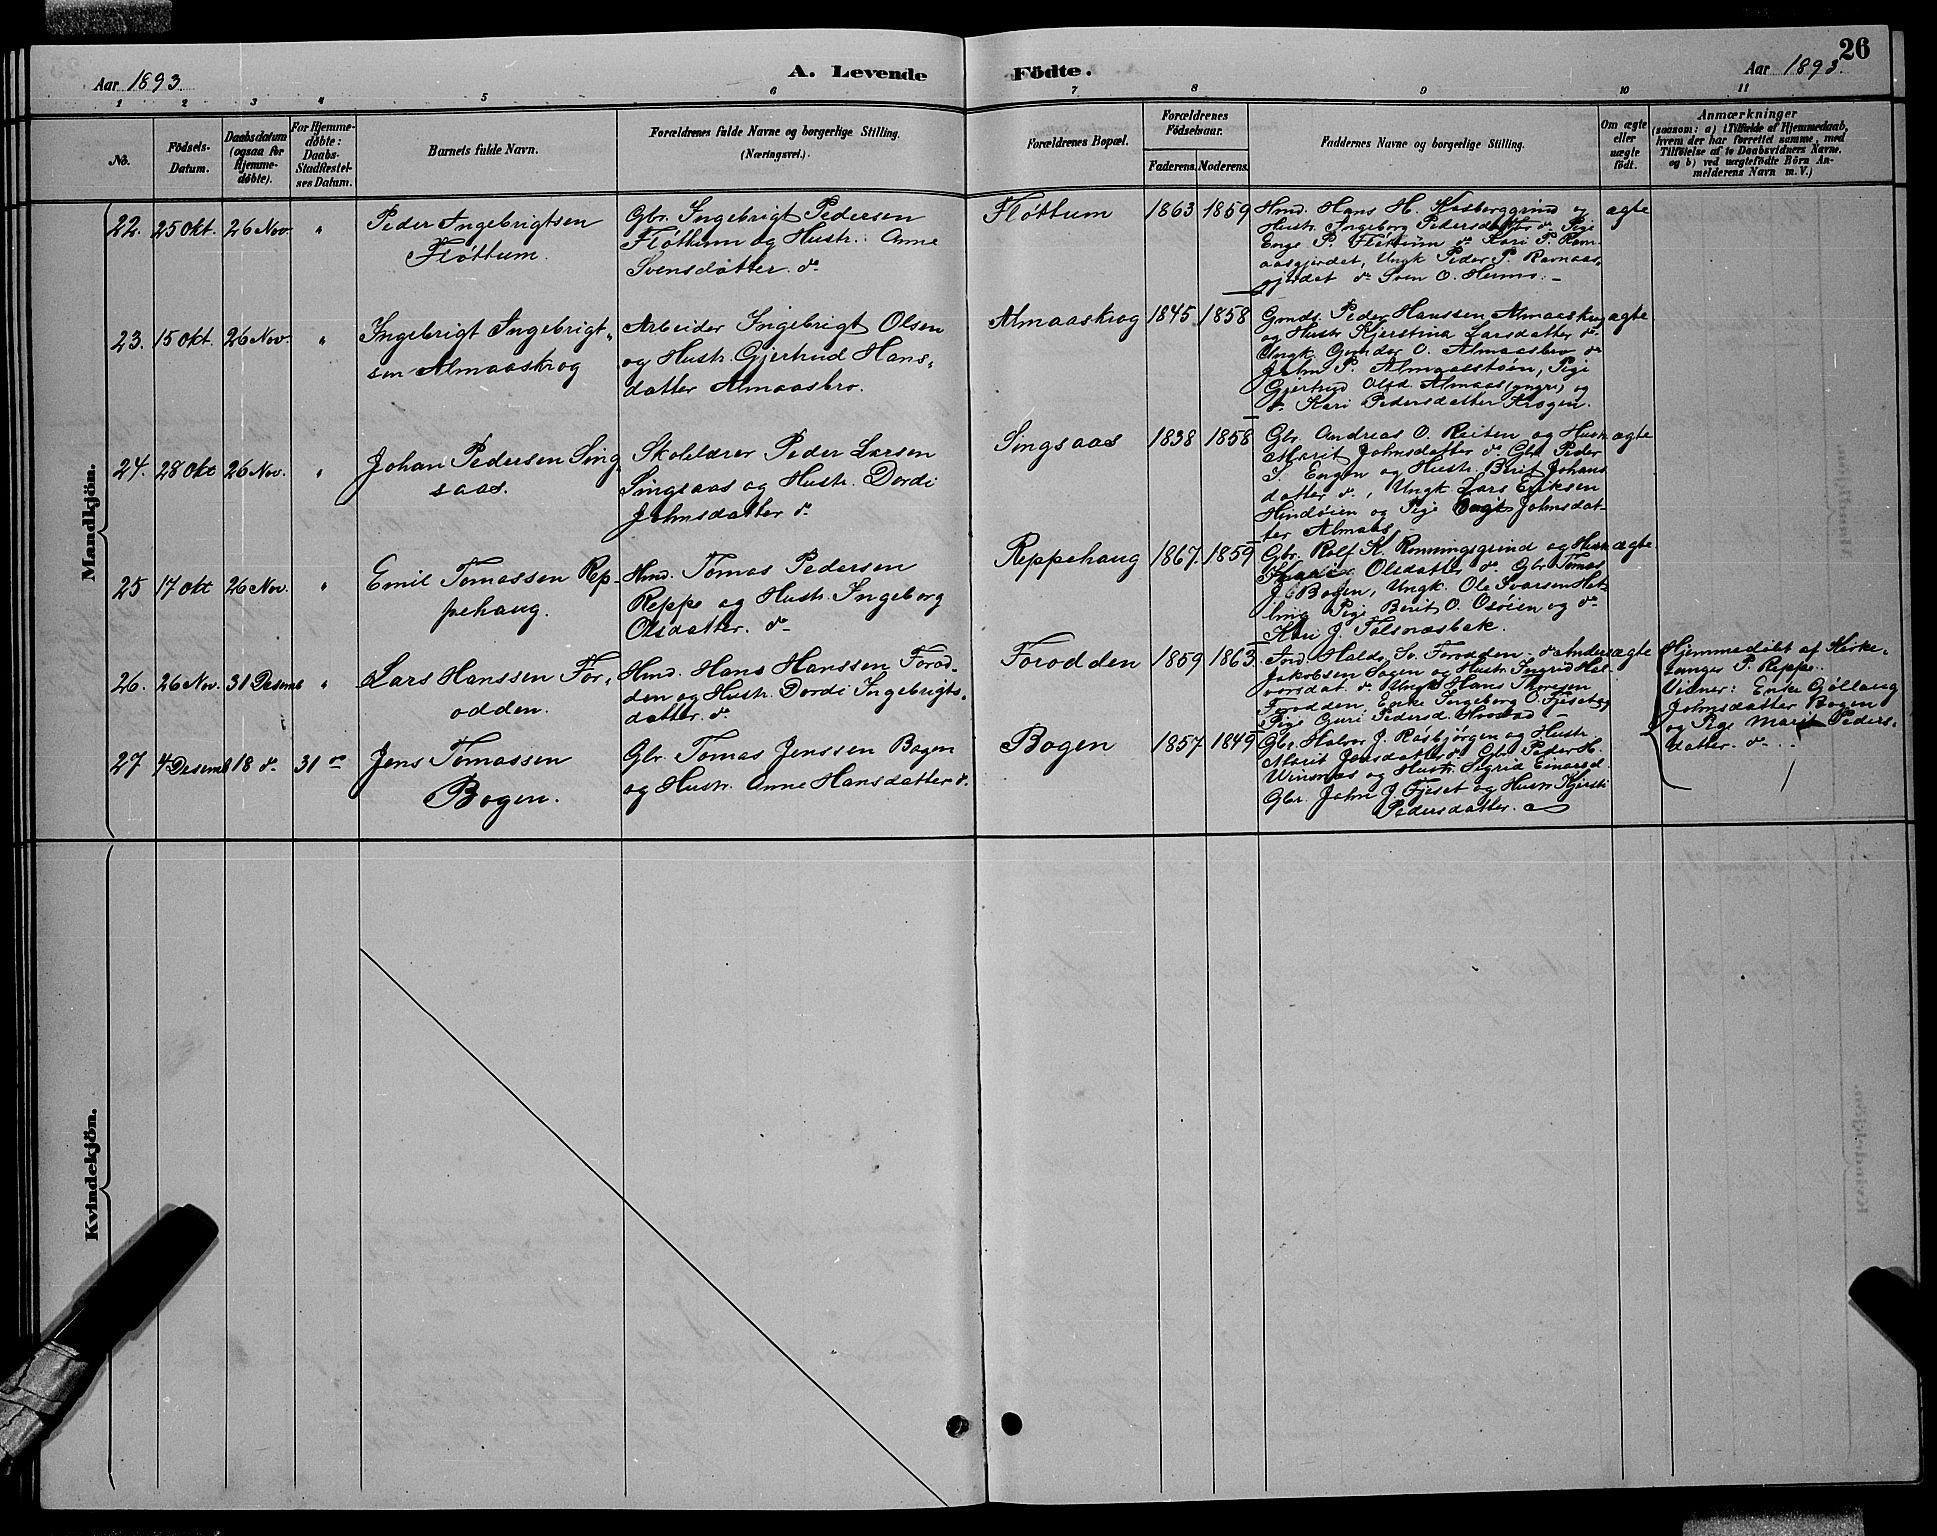 26
Aar 1893.
A. Levende
Födte.
Aar 1893.
1 2 3 4 5 6 7 8 9 10 11
No.
Födsels-
Datum.
Daabsdatum
(ogsaa for
Hjemme-
döbte).
For Hjemme-
döbte:
Daabs-
Stadfæstel-
ses Datum.
Barnets fulde Navn.
Forældrenes fulde Navne og borgerlige Stilling.
(Næringsvei.)
Forældrenes Bopæl.
Forældrenes
Födselsaar.
Faderens. Moderens.
Faddernes Navne og borgerlige Stilling.
Om ægte
eller
uægte
födt.
Anmærkninger
(saasom: a) i Tilfælde af Hjemmedaab,
hvem der har forrettet samme, med
Tilföielse af to Daabsvidners Navne,
og b) ved uægtefödte Börn An-
melderens Navn m. V.)
Mandkjön.
22. 25 Okt. 26 Nov. "
Peder Ingebrigtsen
Fløttum.
Gbr. Ingebrigt Pedersen
Fløttum og Hustr. Anne
Svensdatter. do
Fløttum 1863 1859
Hmd. Hans H. Kosberggrind og
Hustr. Ingeborg Pedersdatter do Pige
Enge P. Fløttum do Kari P. Ram-
aasgjerdet, Ungk Peder P. Ramaas-
gjerdet do Sven O. Hemo. –
ægte
23. 15 Okt. 26 Nov. "
Ingebrigt Ingebrigt-
sen Almaaskrog
Arbeider Ingebrigt Olsen
og Hustr. Gjertrud Hans-
datter Almaasbro.
Almaaskrog 1845 1858
Gmd. Peder Hanssen Almaaskrog
og Hustr Kjerstina Larsdatter do
Ungk. Gunder O. Almaasbro do
John P. Almaasstøien, Pige
Gjertrud Olsd. Almaas (yngre) og
do Kari Pedersdatter Krogen.
ægte
24. 28 Okt 26 Nov. "
Johan Pedersen Sing
saas.
Skolelærer Peder Larsen
Singsaas og Hustr. Dordi
Johnsdatter do
Singsaas 1838 1858
Gbr. Andreas O. Reiten og Hustr
Marit Johnsdatter do Gbr Peder
I. Engen og Hustr. Berit Johans
datter do, Ungk. Lars Eriksen
Hindøien og Pige Johnsdat-
ter Almaas
ægte
25 17 Okt 26 Nov. "
Emil Tomassen Rep-
pehaug.
Hmd. Tomas Pedersen
Reppe og Hustr. Ingeborg
Olsdatter. do
Reppehaug 1867. 1859
Gbr. Rolf K. Rønningsgrind og Hustr
Olsdatter do Gbr Tomas
J. Bogen, Ungk. Ole Ivarsen Het-
ling Pige Berit O. Osøien og do
Kari J. Folsnæsbak.
ægte
26. 26 Nov. 31 Desemb "
Lars Hanssen For-
odden.
Hmd. Hans Hanssen Forod-
den og Hustr. Dordi Ingebrigts-
datter. do
Forodden 1859 1863
Haldo Sv. Forodden. do Anders
Jakobsen Bogen og Hustr Ingrid Hal-
vorsdat. do Ungk Hans Thoresen
Forodden, Enke Ingeborg O. Fjeset og
Pige Guri Pedersd. Hovstad
ægte
Hjemmedøbt af Kirke-
sanger P. Reppe.
Vidner: Enke Gøllaug
Johnsdatter Bogen
og Pige Marit Peders-
datter. do
27. 4 Desemb 18 do 31 do
Jens Tomassen
Bogen.
Gbr. Tomas Jenssen Bogen
og Hustr. Anne Hansdatter do.
Bogen 1857 1849
Gbr. Halvor J. Rosbjørgen og Hustr
Marit Jensdatter do Gbr Peder H.
Winsnæs og Hustr. Sigrid Einarsd.
Gbr. John J. Fjeset og Hustr Kjersti
Pedersdatter.
Kvindekjön.